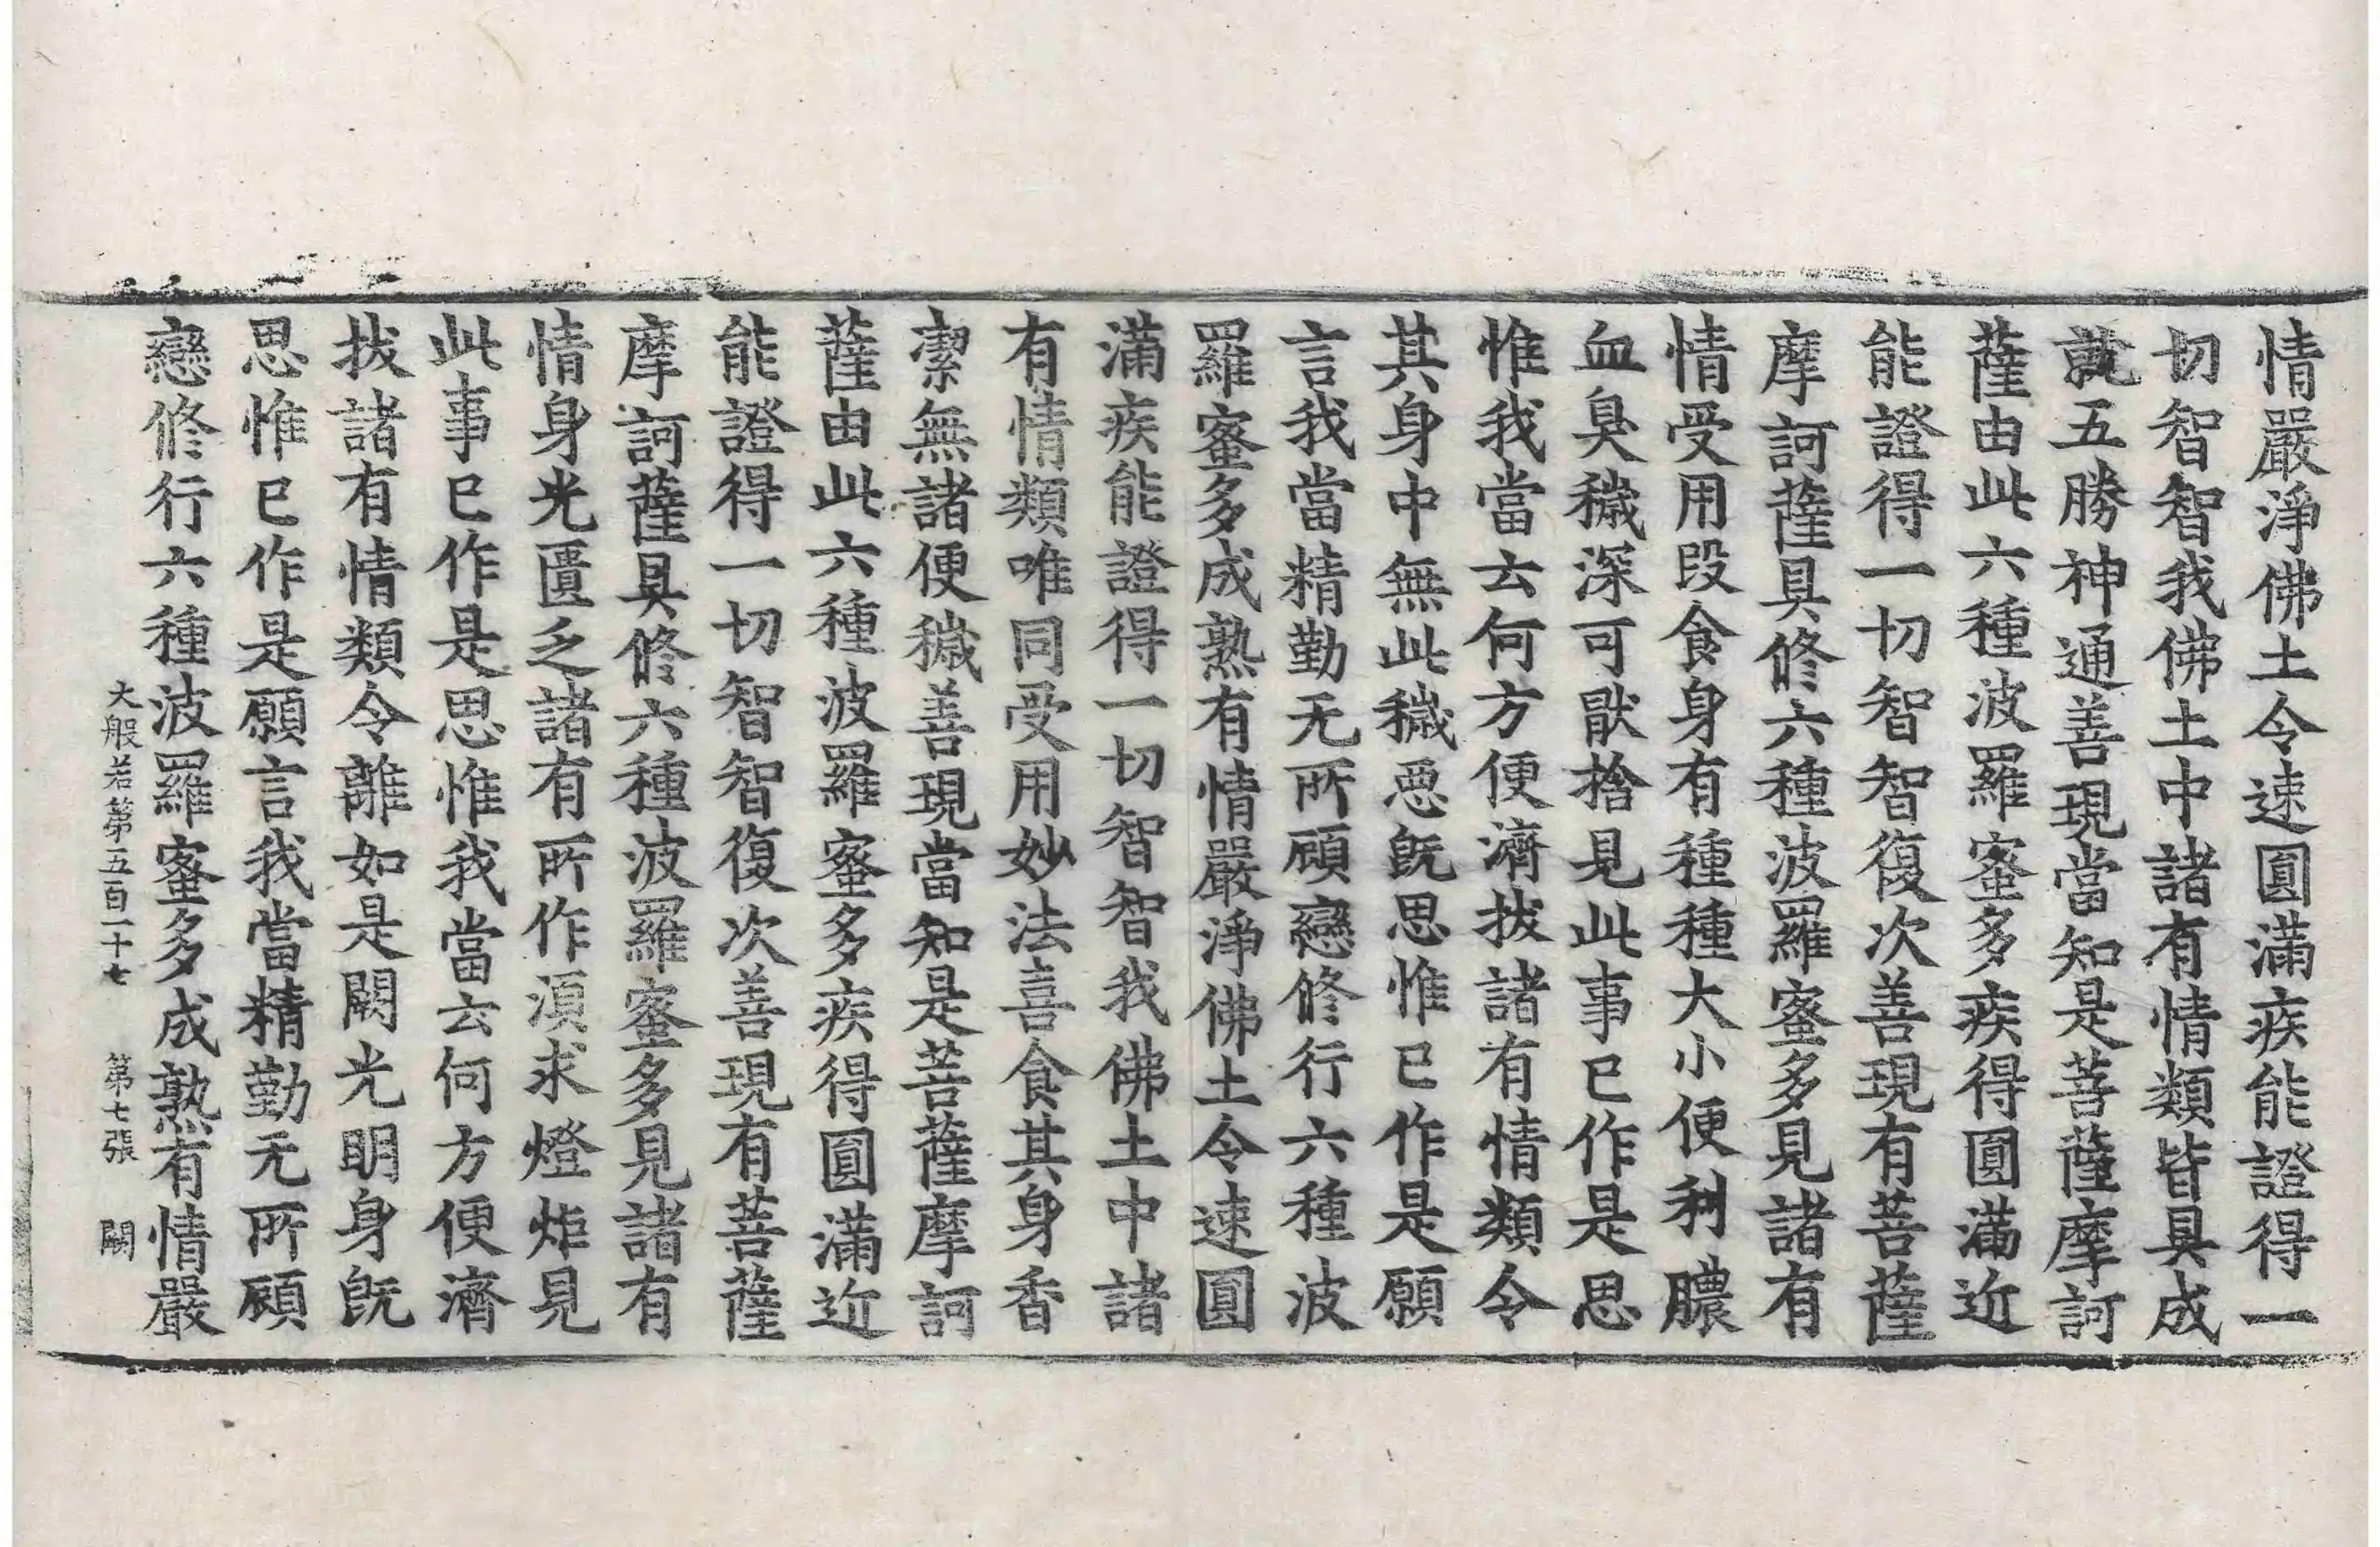 情嚴淨佛土令速圓滿疾能證得一
切智智我佛土中諸有情類皆具成
就五勝神通善現當知是菩薩摩訶
薩由此六種波羅蜜多疾得圓滿近
能證得一切智智復次善現有菩薩
摩訶薩具修六種波羅蜜多見諸有
情受用段食身有種種大小便利膿
血臭穢深可猒捨見此事已作是思
惟我當云何方便濟拔諸有情類令
其身中無此穢惡旣思惟已作是願
言我當精勤无所顧戀修行六種波
羅蜜多成熟有情嚴淨佛土令速圓
滿疾能證得一切智智我佛土中諸
有情類唯同受用妙法喜食其身香
潔無諸便穢善現當知是菩薩摩訶
薩由此六種波羅蜜多疾得圓滿近
能證得一切智智復次善現有菩薩
摩訶薩具修六種波羅蜜多見諸有
情身光匱乏諸有所作湏求燈炬見
此事已作是思惟我當云何方便濟
拔諸有情類令離如是闕光明身旣
思惟已作是願言我當精勤无所顧
戀修行六種波羅蜜多成熟有情嚴
大般若第五百二十七 第七張 闕